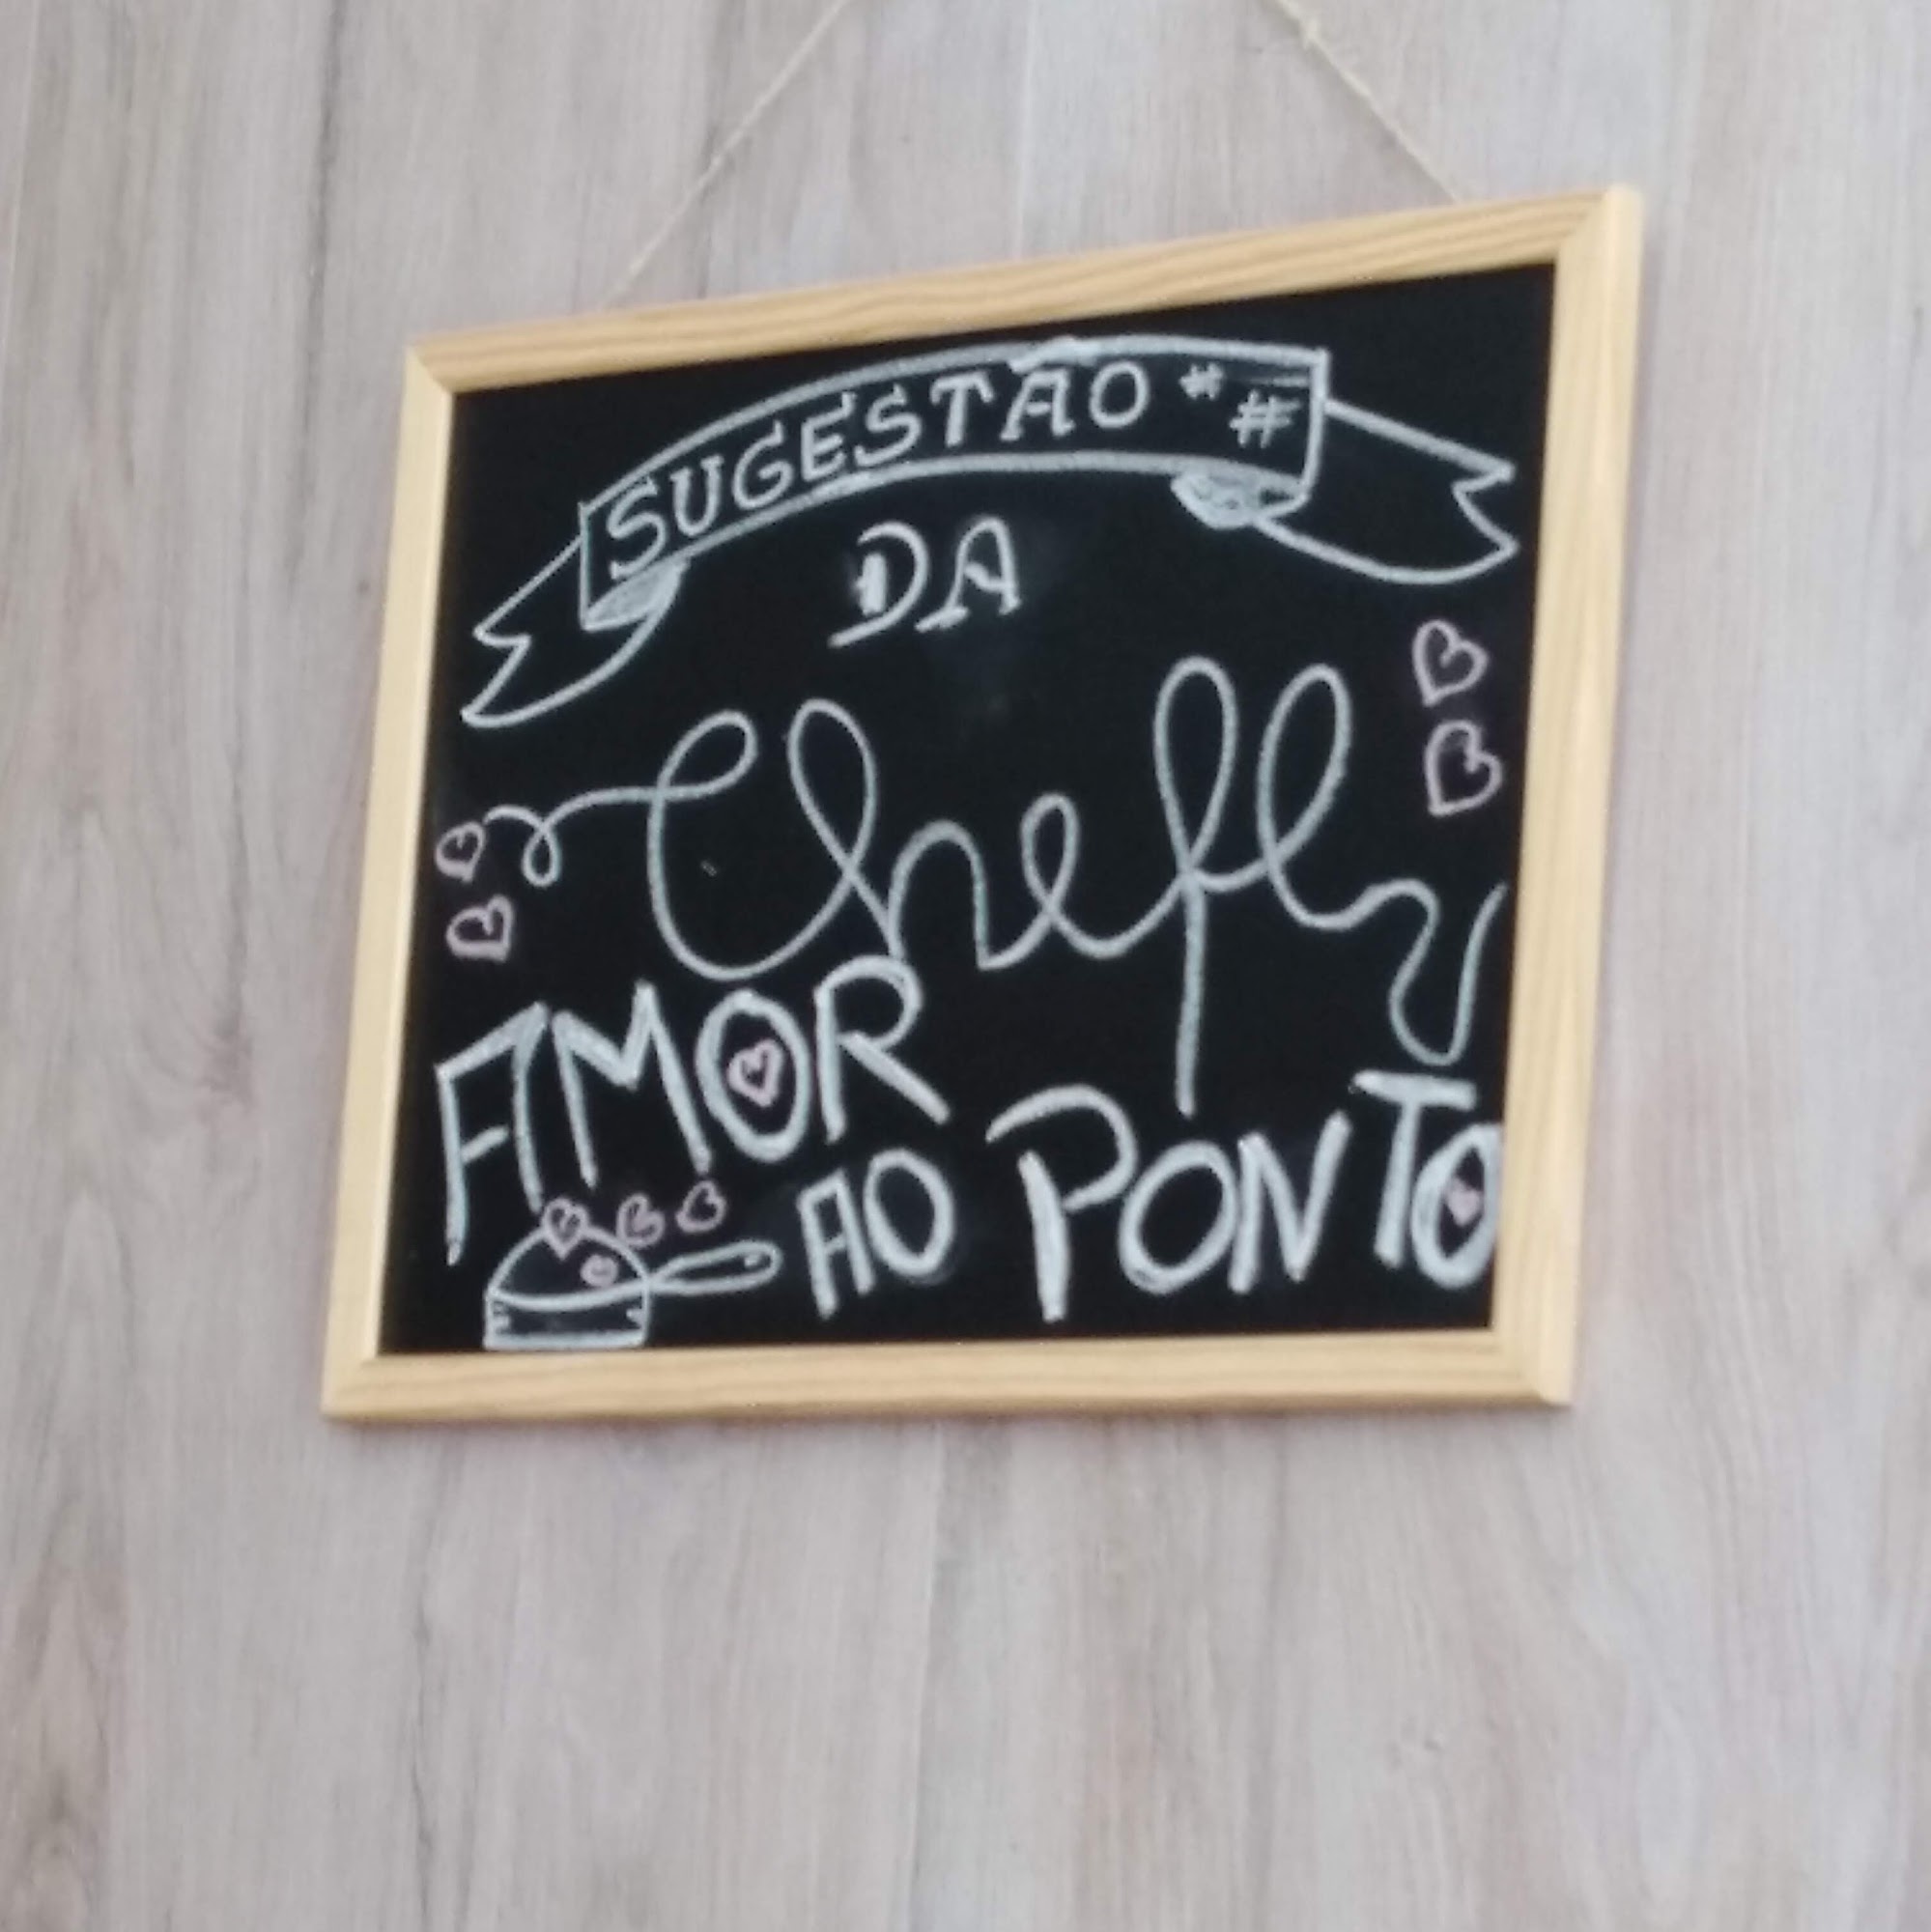 SUGESTÃO # #
DA
Cheff
AMOR
AO PONTO